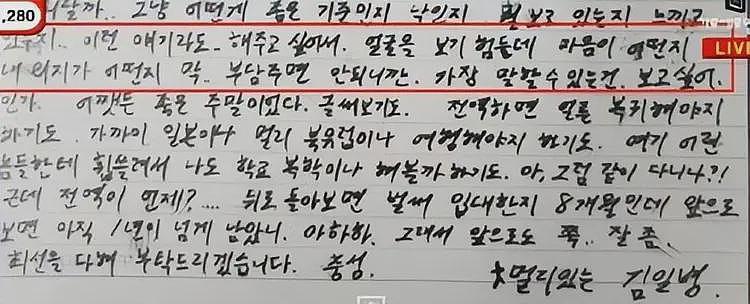 ,280
니랄까.. 그냥 어떤게 좋은 기준인지 낙인지 있는지! 느끼고
이런 얘기라도.. 해주고 싶어서. 얼굴을 보기 힘든데 마음이 어떤지
LIVE
내 의지가 어떤지 막.. 부담주면 안되니깐. 가장 말할 수 있는건. 보고싶어.
인가. 어쨋든 좋은 주말이었다. 글써보기도. 전역하면 얼른 복귀해야지
하기도. 가까이 일본이나 멀리 북유럽이나 여행해야지 하기도. 여기 어린
놈들한테 휩쓸려서 나도 학교 복학이나 해볼까 하기도. 아, 그럼 같이 다니나?!
근데 전역이 언제?.... 뒤로 돌아보면 벌써 입대한지 8개월인데 앞으로
보면 아직 1년이 넘게 남았니. 아하하. 그래서 앞으로도 쭉.. 잘 좀.
최선을 다해 부탁드리겠습니다. 충성.
멀리있는 김일병.